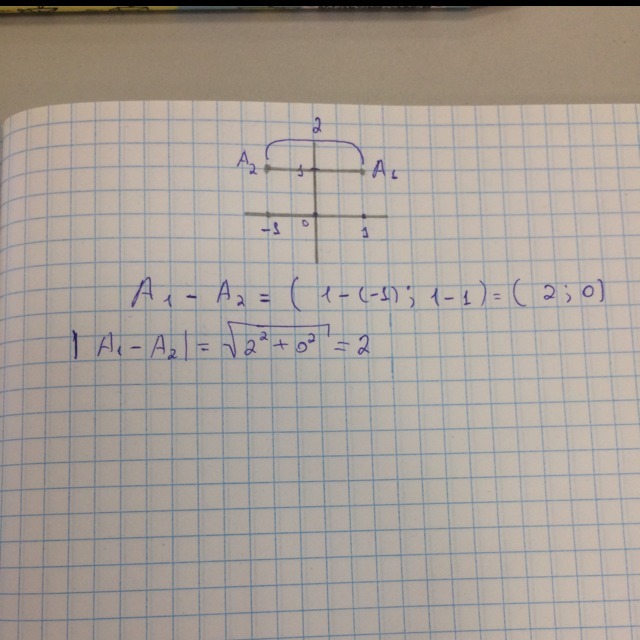 2
A₂ 1 A₁
-1 0 1
A₁ - A₂ = ( 1-(-1); 1-1) = ( 2; 0)
| A₁ - A₂| = √2² + 0² = 2